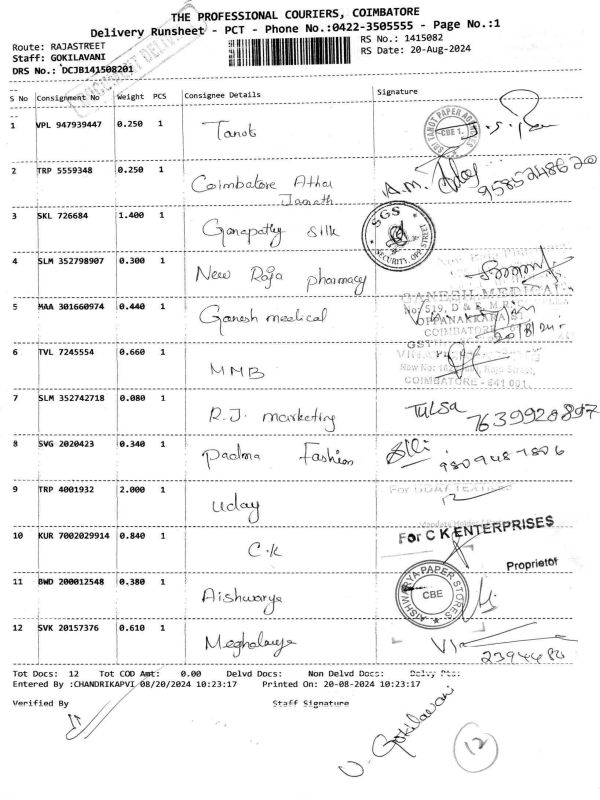 THE PROFESSIONAL COURIERS, COIMBATORE
Delivery Runsheet - PCT - Phone No.:0422-3505555 - Page No.:1
Route: RAJASTREET
RS No.: 1415082
Staff: GOKILAVANI
RS Date: 20-Aug-2024
DRS No.: DCJB141508201
S No Consignment No Weight PCS Consignee Details Signature
1 VPL 947939447 0.250 1 Tanot
TAROT PAPER
CBE 1.
2 TRP 5559348 0.250 1 Coimbatore Athar
Janath
A.M.
9585248620
3 SKL 726684 1.400 1 Ganapathy silk
SGS
SECURITY, OPP. STREET
4 SLM 352798907 0.300 1 New Raja pharmacy
5 MAA 301660974 0.440 1 Ganesh medical
GANESH MEDICAL
OPPANAKKARA ST
COIMBATORE
20/8/24
6 TVL 7245554 0.660 1 MMB
Raja Street,
COIMBATORE - 641 001.
7 SLM 352742718 0.080 1 R.J. marketing
TULSA
7639928897
8 SVG 2020423 0.340 1 Padma Fashion
9809487806
9 TRP 4001932 2.000 1 Uday
For UDAY TEXTILES
10 KUR 7002029914 0.840 1 C.K
For C K ENTERPRISES
Proprietor
11 BWD 200012548 0.380 1 Aishwarya
AISHWARYA PAPER STORES
CBE
12 SVK 20157376 0.610 1 Meghalaya
2394480
Tot Docs: 12 Tot COD Amt: 0.00 Delvd Docs: Non Delvd Docs: Delvy Pts:
Entered By :CHANDRIKAPVJ 08/20/2024 10:23:17 Printed On: 20-08-2024 10:23:17
Verified By Staff Signature
U. Gokilavani
12